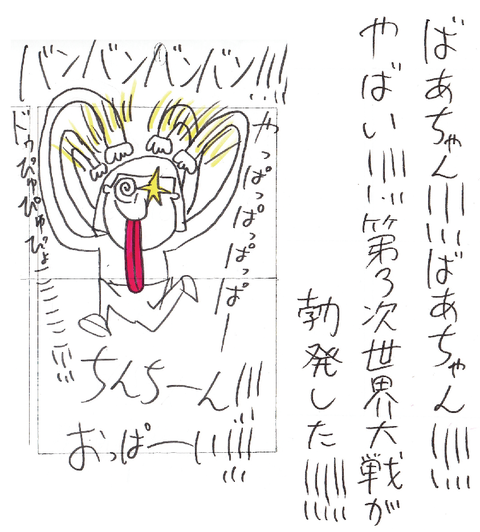 ばあちゃん!!!!!!ばあちゃん!!!!!!
やばい!!!!!!第3次世界大戦が
勃発した!!!!!!
バンバンバンバン!!!
やっぱっぱっぱー
ドゥぴゅぴゅぴょーーーーー!!!
ちんちーん!!!
おっぱーい!!!!